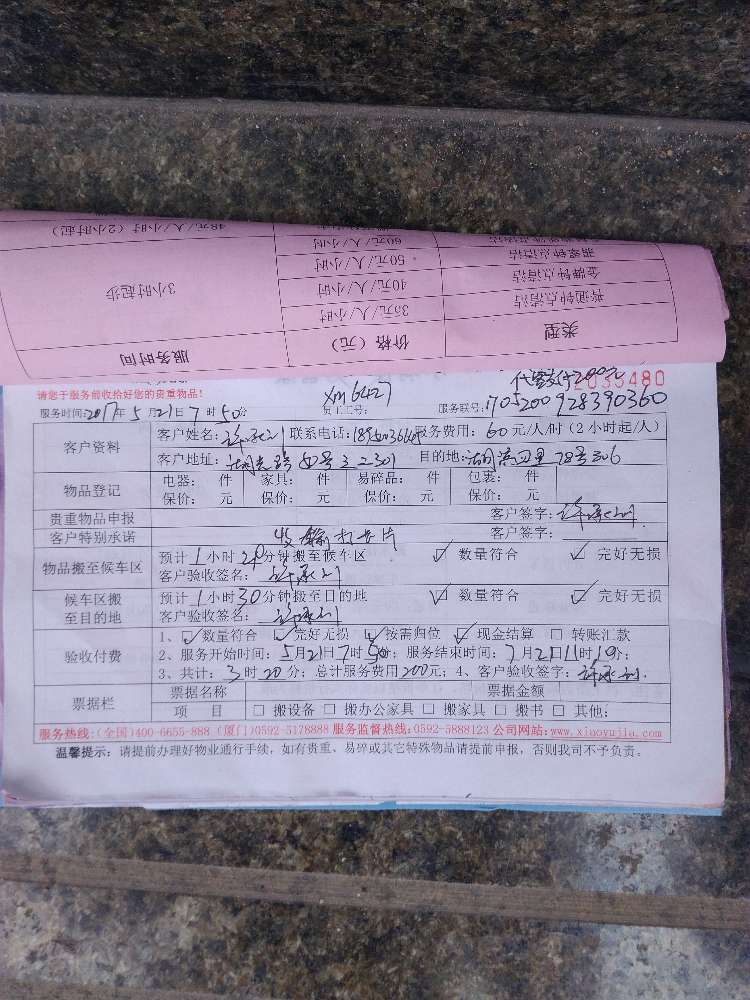 48元/人/小时（2小时起）
60元/人/小时
翡翠钟点清洁
50元/人/小时
金牌钟点清洁
40元/人/小时
普通钟点清洁
3小时起步
35元/人/小时
服务时间
价格（元）
类型
请您于服务前收给好您的贵重物品!
2035480
服务时间:2017年5月21日7时50分
员工工号: XM6427
服务联号: 1705200928390360
客户资料
客户姓名: 联系电话: 服务费用: 60元/人/时(2小时起/人)
客户地址: 目的地: 78号306
物品登记
电器: 件 家具: 件 易碎品: 件 包裹: 件
保价: 元 保价: 元 保价: 元 保价: 元
贵重物品申报
客户签字:
客户特别承诺
客户签字:
物品搬至候车区
预计1小时20分钟搬至候车区 ☑ 数量符合 ☑ 完好无损
客户验收签名:
候车区搬至目的地
预计1小时30分钟搬至目的地 ☑ 数量符合 ☑ 完好无损
客户验收签名:
验收付费
1、☑数量符合 ☑完好无损 ☑按需归位 ☑现金结算 □转账汇款
2、服务开始时间: 5月21日7时50分; 服务结束时间: 7月21日11时10分;
3、共计: 3时20分; 总计服务费用200元; 4、客户验收签字:
票据栏
票据名称 票据金额
项 目 □搬设备 □搬办公家具 □搬家具 □搬书 □其他:
服务热线:(全国)400-6655-888 (厦门)0592-5178888 服务监督热线:0592-5888123 公司网站:www.xiaoyujia.com
温馨提示: 请提前办理好物业通行手续，如有贵重、易碎或其它特殊物品请提前申报，否则我司不予负责。